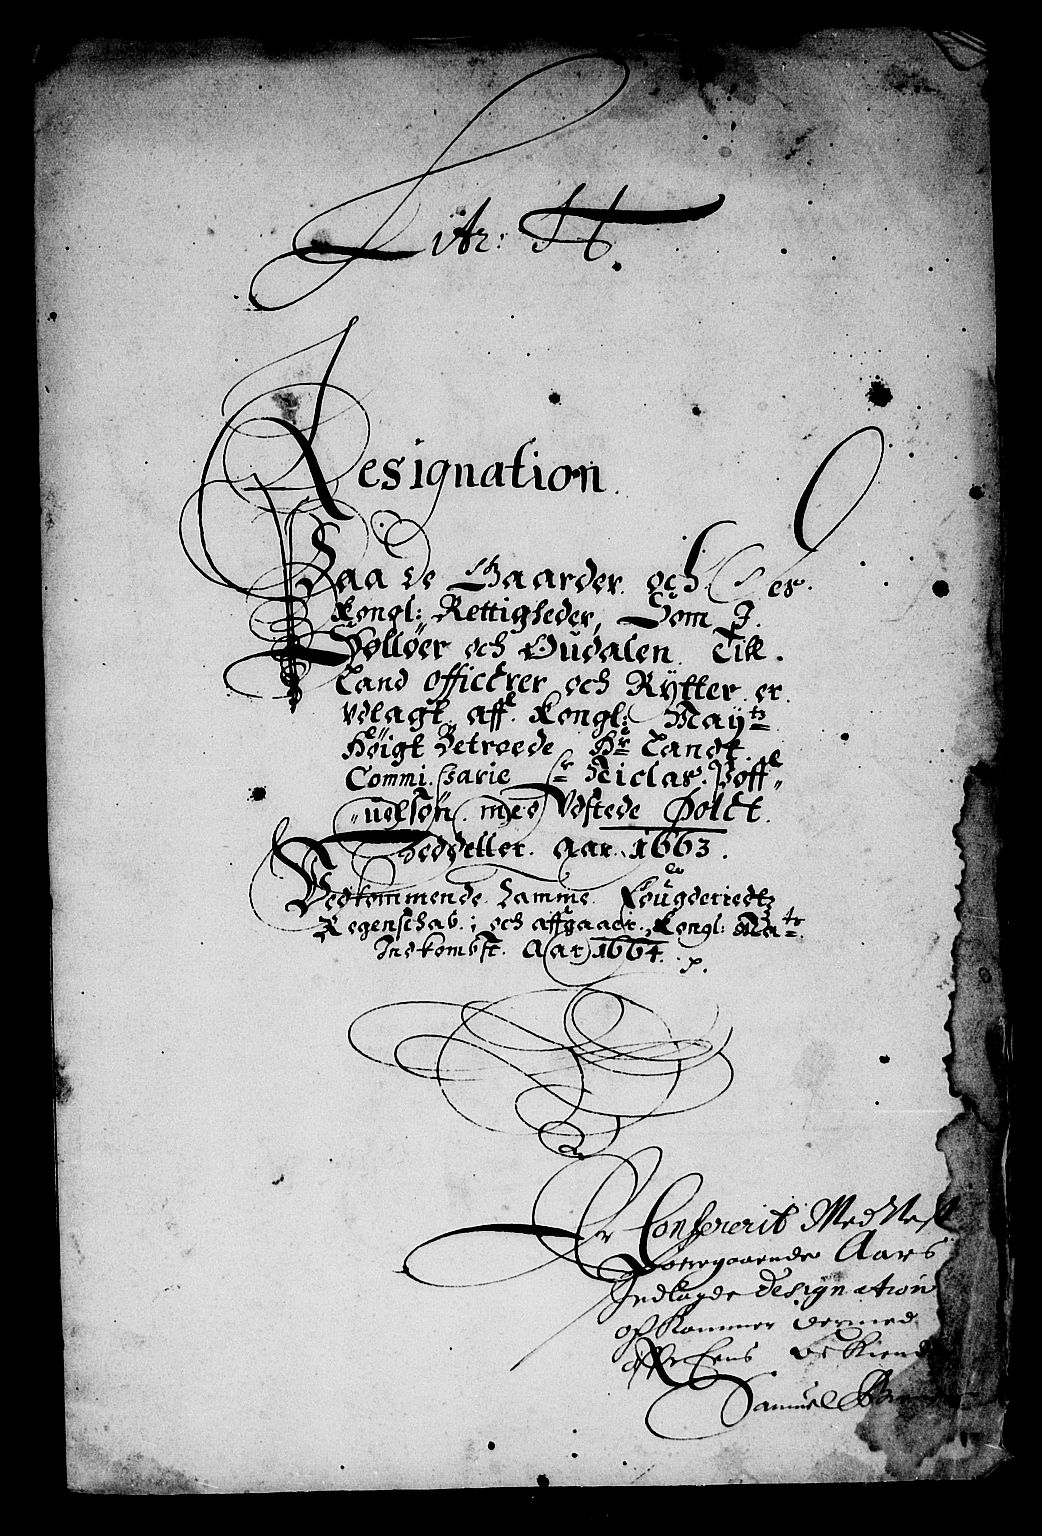 Litr: H
Designation
Paa de Gaarder och
Kongl: Rettigheder, Som J
Solløer och Oudalen Till
Land officerer och Rytter er
Vdlagt aff Kongl: Maytz
Høigt Betroede Hr Landt
Commissarie Hr Niclas Poff
uelsøn med Vdstede
Sedдeller Aar 1663.
Vedkommende Samme Fougderiedtz
Regenschab; och affgaar Kongl: Matz
Indkombst. Aar 1664.
Er Confererit Med Nest
Forregaaende Aars
Indlagde designation
och Kommer dermed
offuer Eens
Samuel